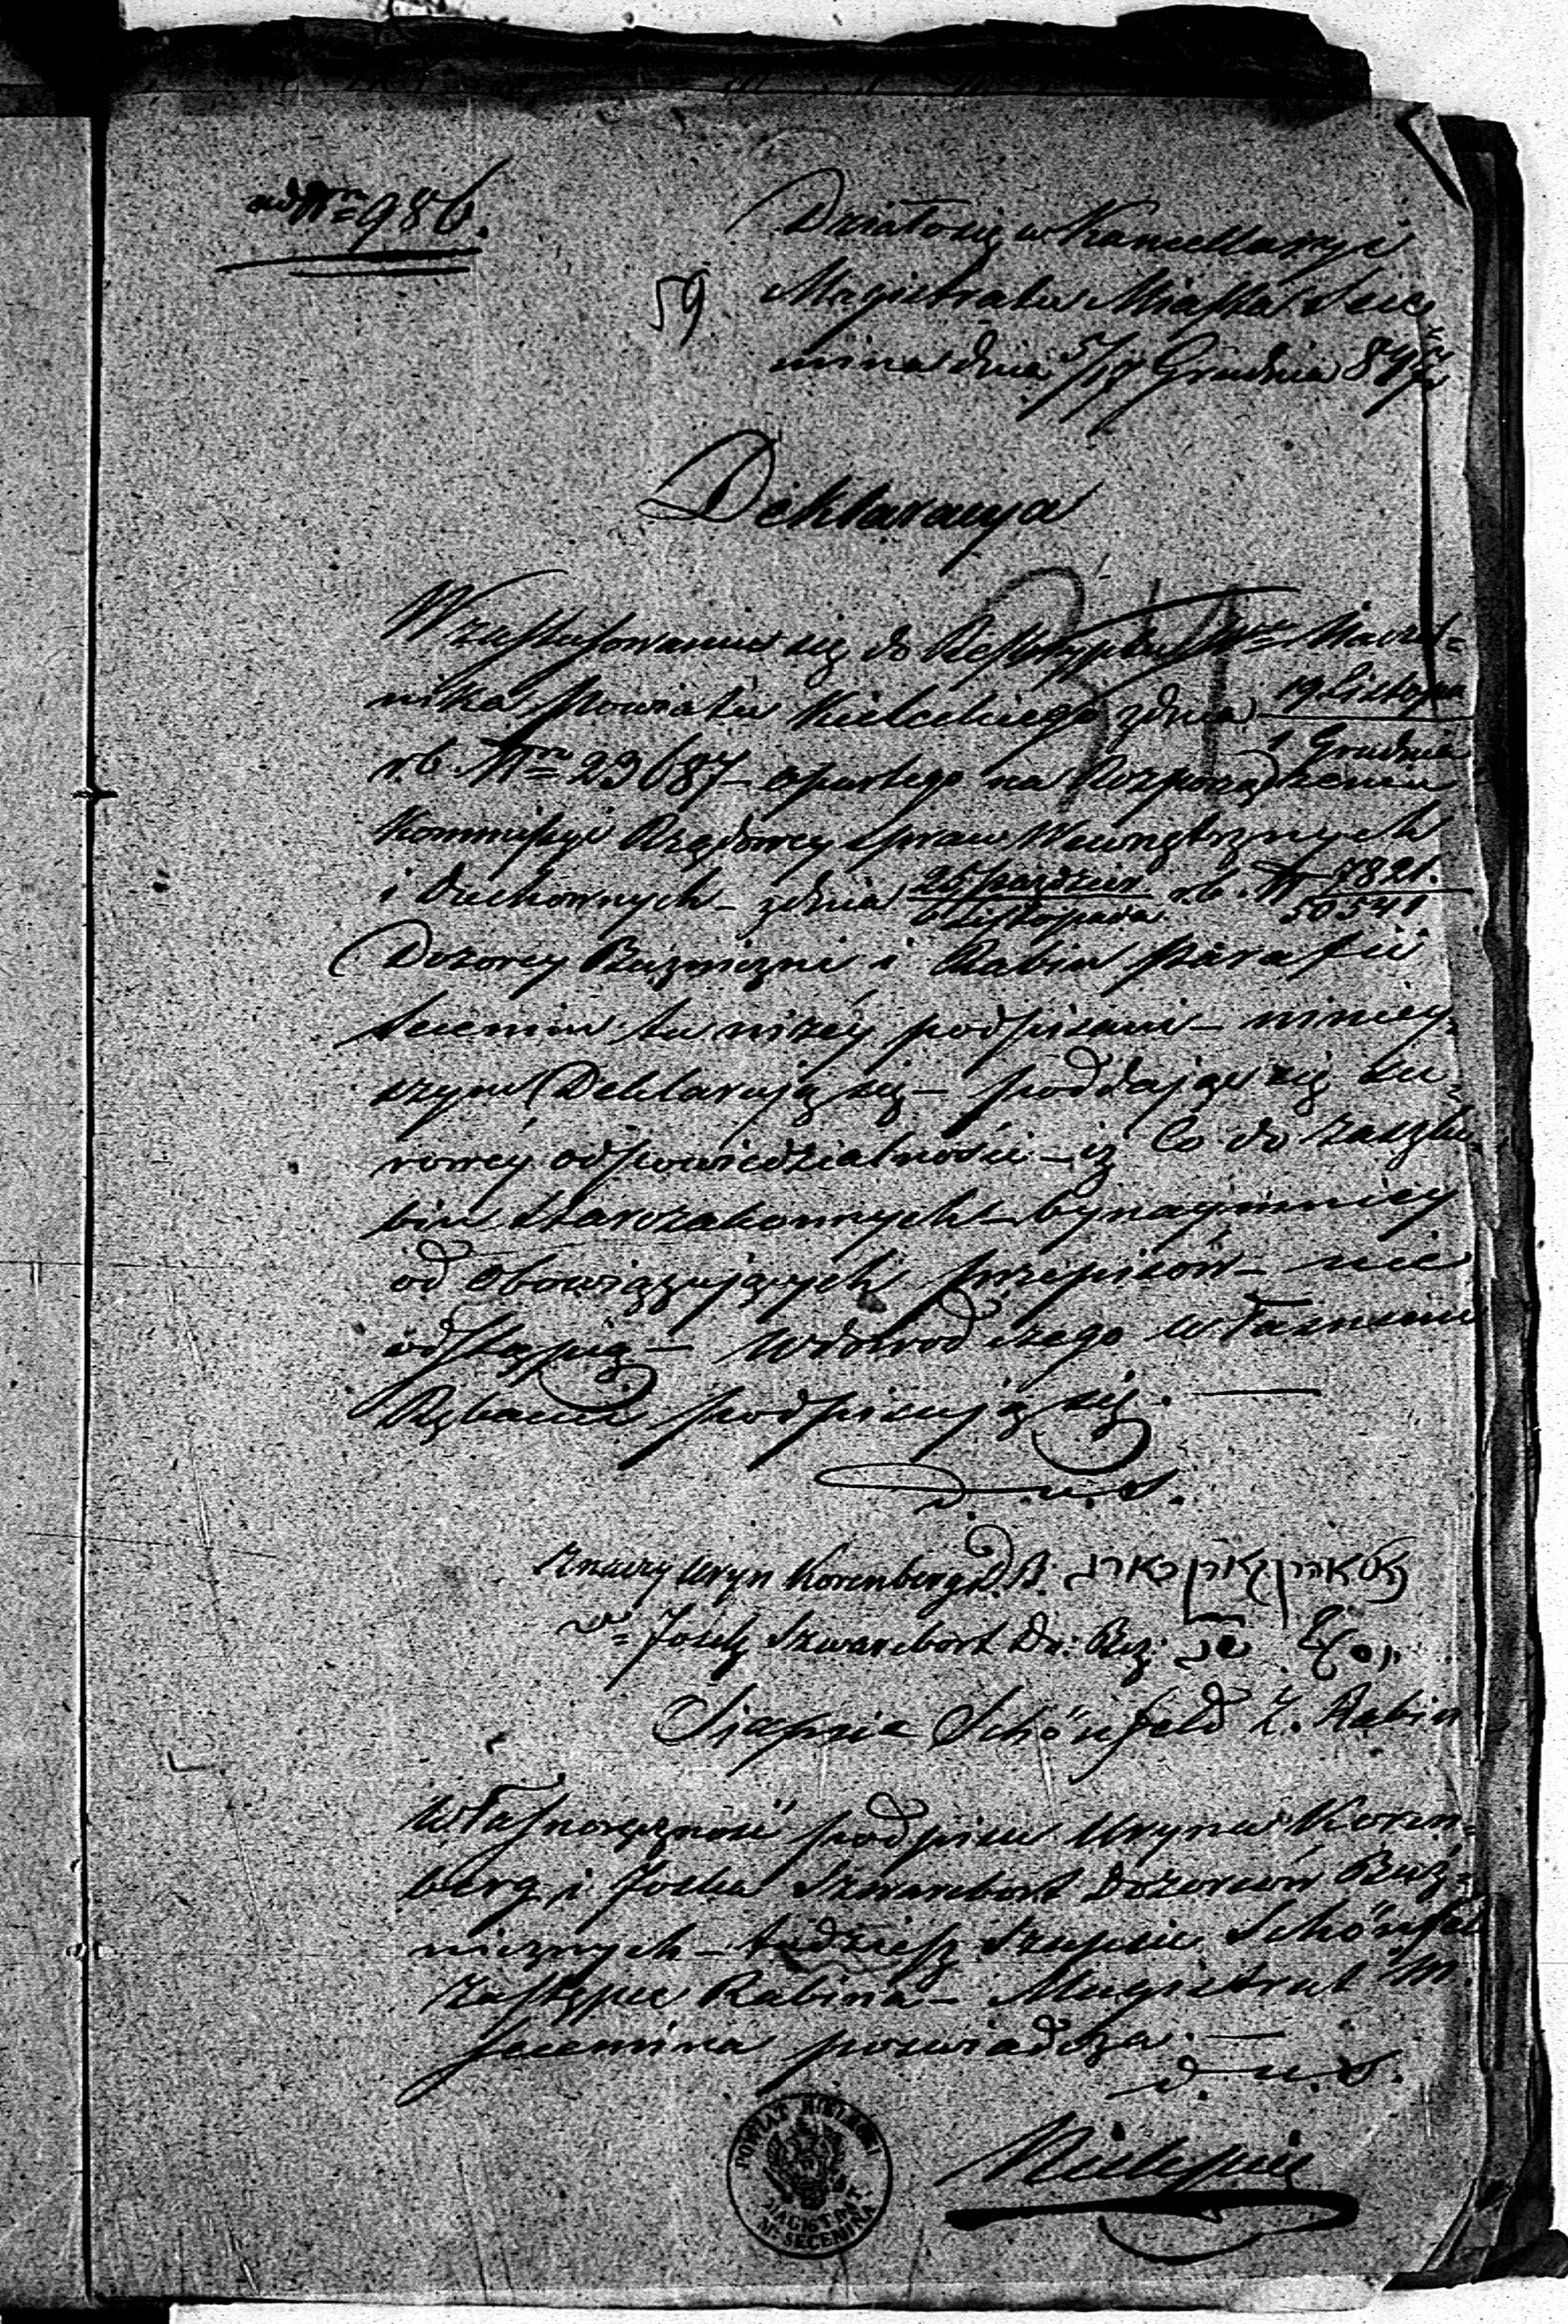 ad Nro 986.
59
Działo się w Kancellaryi
Magistratu Miasta Sece=
mina dnia 5/17 Grudnia 84
Deklaracya
W zastosowaniu się do Reskryptu Wgo Naczel=
nika Powiatu Kieleckiego z dnia 19 Listopa
1 Grudnia
r. b. Nro 23687 – opartego na Rozporządzeniu
Kommissyi Rządowey Spraw Wewnętrznych
i Duchownych – z dnia 25 Paździer / 6 Listopada r. b. N 7821. / 50541
Dozorcy Bużniczni i Rabin Parafii
Secemin tu niżéy podpisani – niniey=
szym Deklarują się – poddając się su=
rowéy odpowiedzialności – iż Co do zaszlu=
bin Starozakonnych – bynaymniéy
od obowiązujących przepisów – nie
odstąpią – w dowód czego własnemi
Rękami podpisują się. —
d. u. s.
Znaczy Uryn Korenberg D. B.
Josek Szwarcbort Do: Buż: יוסף
Sjapsia Schönfeld Z. Rabin
Własnoręczność podpisu Uryna Koren=
berg i Joska Szwarcbort Dozorców Buż=
nicznych – tudzież Szapsie Schönfel
Zastępce Rabina – Magistrat M.
Secemina poswiadcza. —
d. u. s.
POWIAT KIELECKI
MAGISTRAT
M. SECEMINA